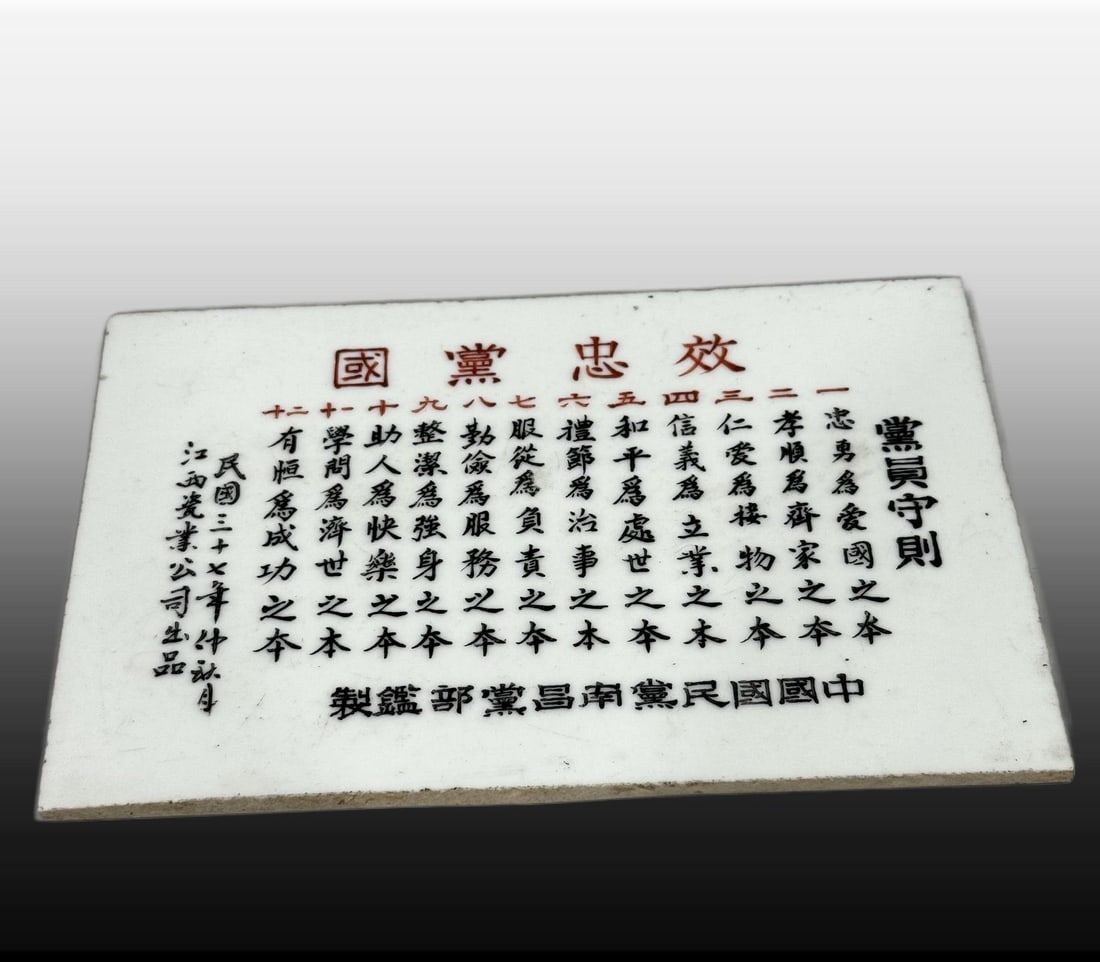 效忠黨國
黨員守則
一 忠勇為愛國之本
二 孝順為齊家之本
三 仁愛為接物之本
四 信義為立業之本
五 和平為處世之本
六 禮節為治事之本
七 服從為負責之本
八 勤儉為服務之本
九 整潔為強身之本
十 助人為快樂之本
十一 學問為濟世之本
十二 有恒為成功之本
民國三十七年仲秋月
江西瓷業公司出品
中國國民黨南昌黨部鑑製